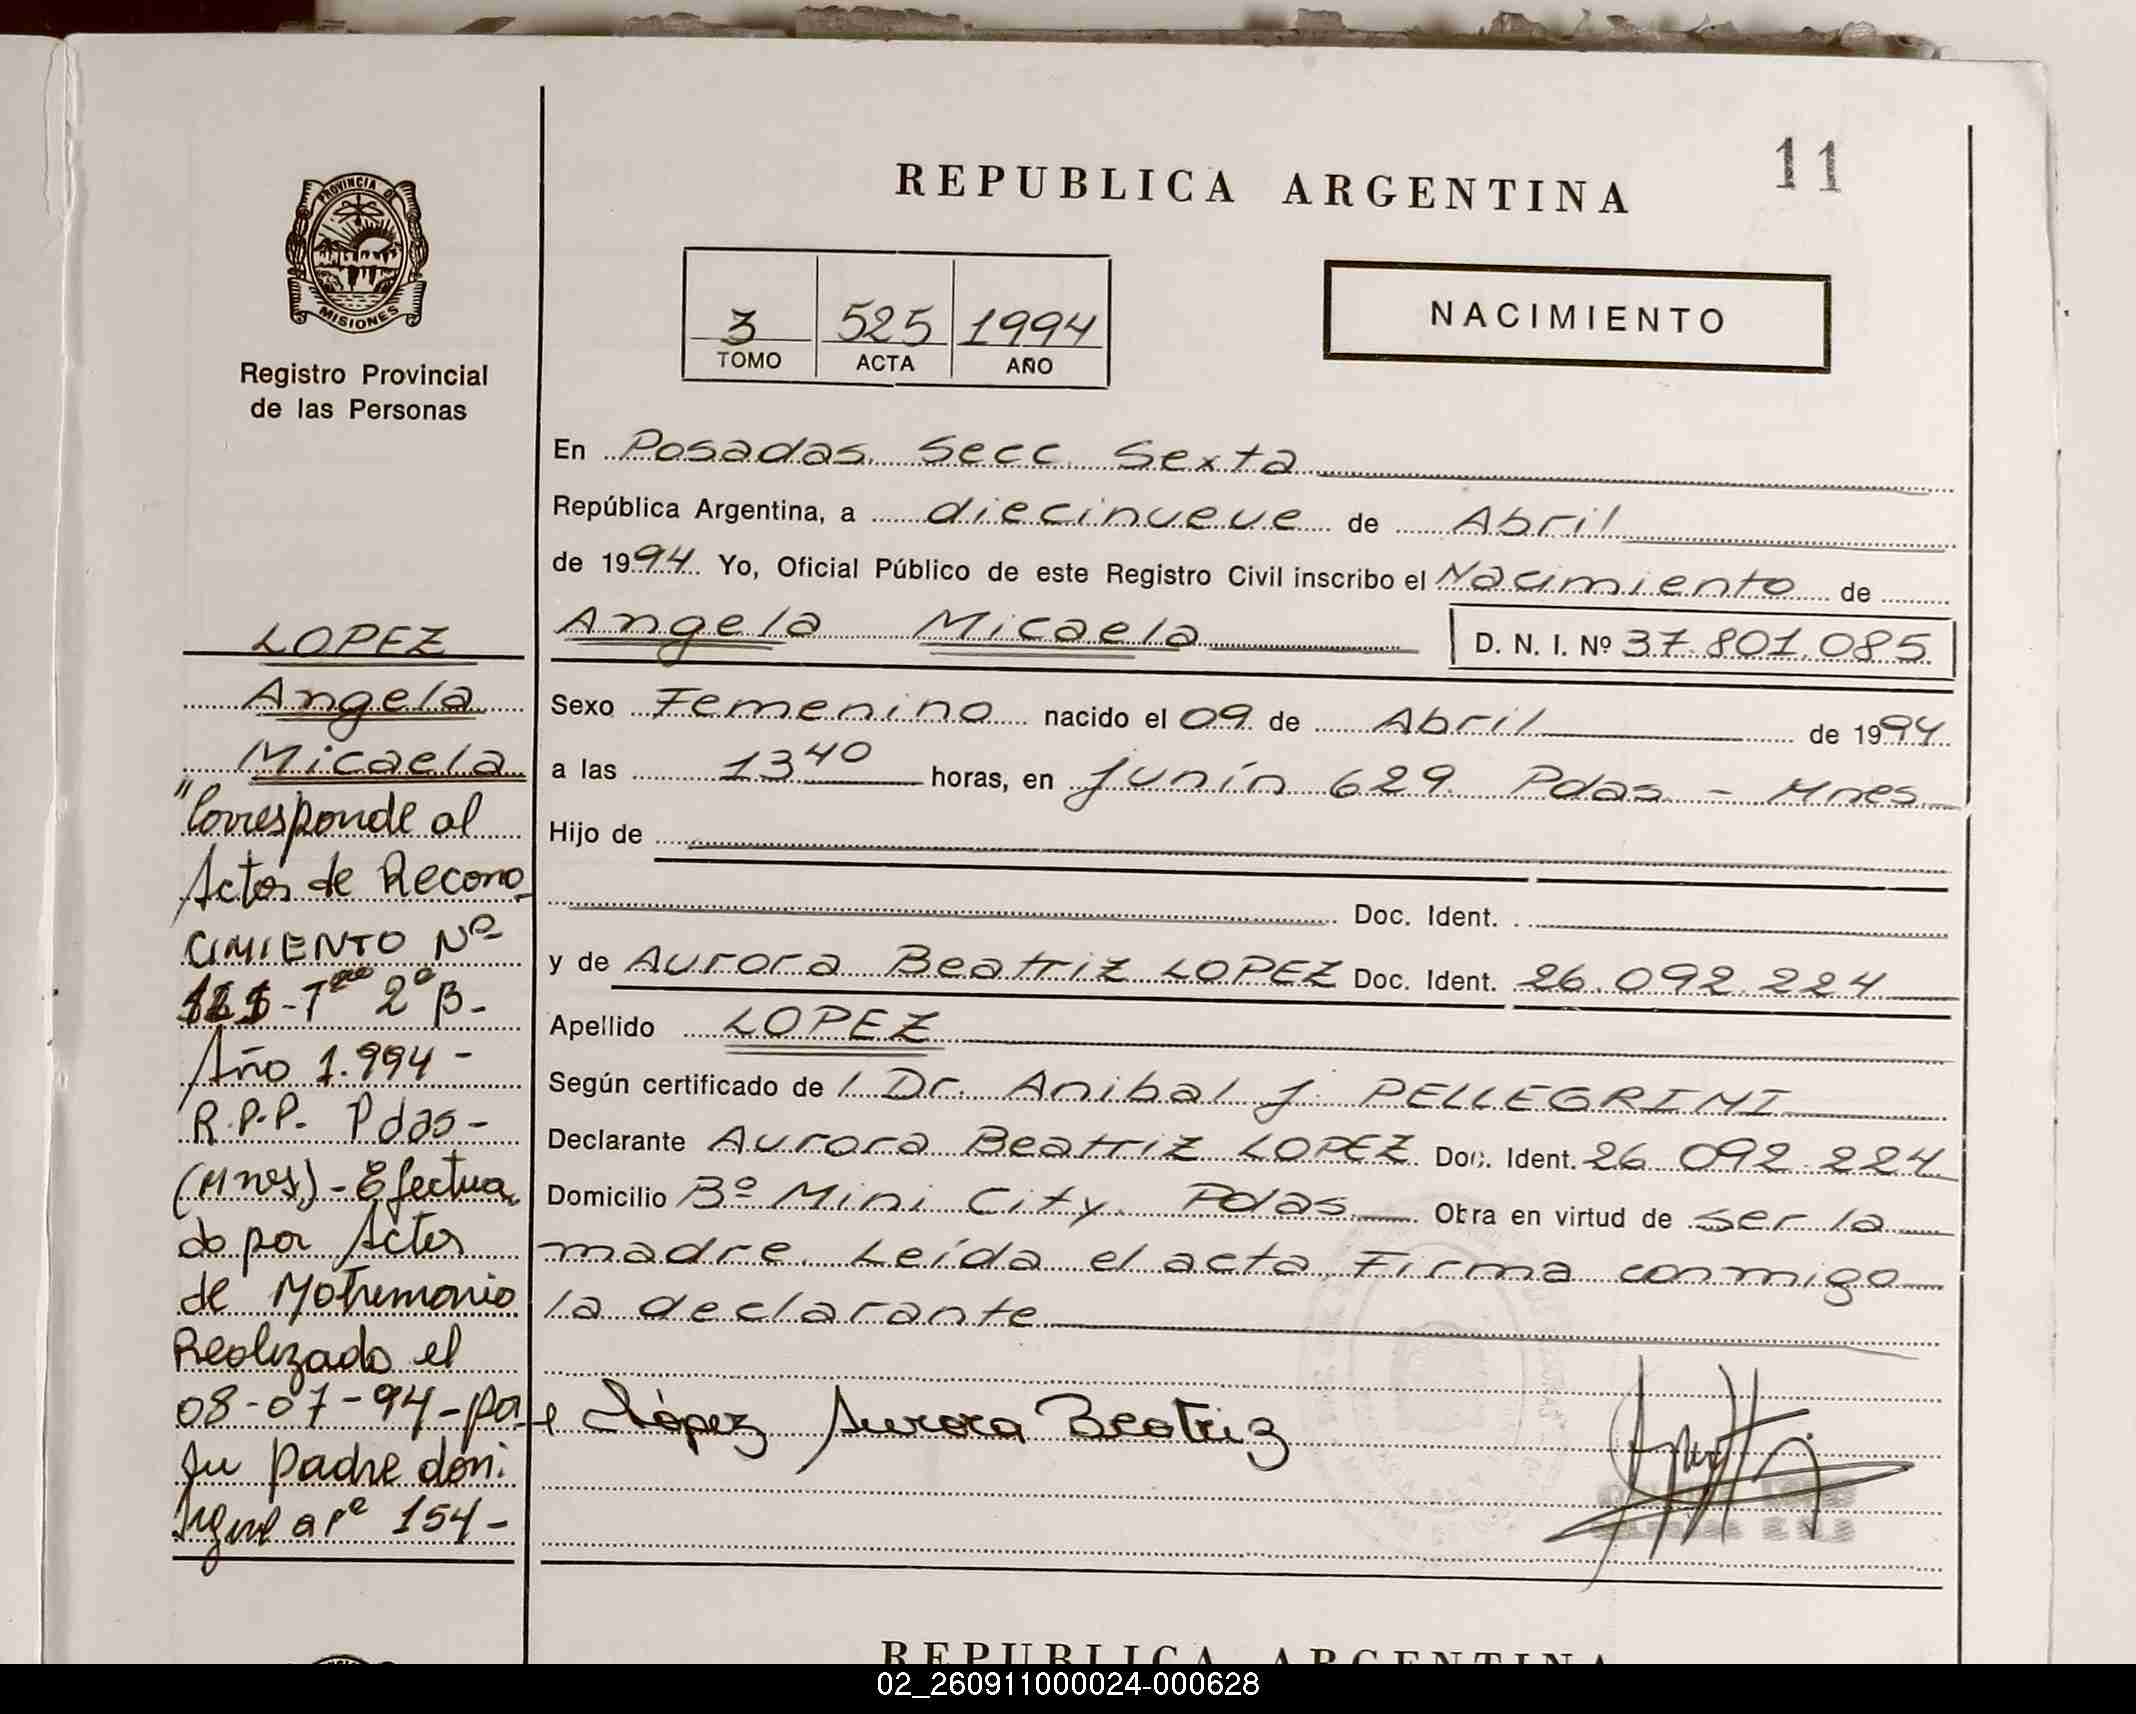 11
REPUBLICA ARGENTINA
PROVINCIA DE
MISIONES
Registro Provincial
de las Personas
3 525 1994
TOMO ACTA AÑO
NACIMIENTO
En Posadas. Secc. Sexta
República Argentina, a diecinueve de Abril
de 1994 Yo, Oficial Público de este Registro Civil inscribo el Nacimiento de
Angela Micaela D. N. I. Nº 37.801.085
Sexo Femenino nacido el 09 de Abril de 1994
a las 13 40 horas, en Junín 629. Pdas. - Mnes
Hijo de
Doc. Ident.
y de Aurora Beatriz LOPEZ Doc. Ident. 26.092.224
Apellido LOPEZ
Según certificado de l Dr. Anibal J. PELLEGRINI
Declarante Aurora Beatriz LOPEZ Doc. Ident. 26 092.224
Domicilio Bº Mini City. Pdas. Obra en virtud de ser la
madre. Leída el acta, Firma conmigo
la declarante
López Aurora Beatriz
LOPEZ
Angela
Micaela
"Corresponde al
Actos de Recono
CIMIENTO Nº
2º B-
Año 1.994-
R.P.P. Pdas-
(Mnes)-Efectua
do por Actos
de Matrimonio
Realizado el
08-07-94-por
su padre
154-
REPUBLICA ARGENTINA
02_260911000024-000628